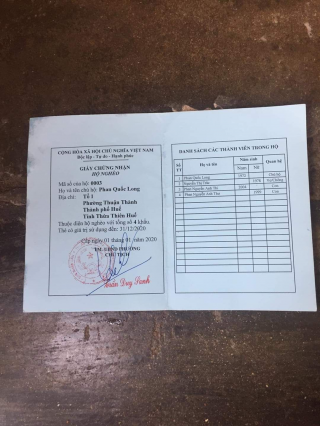 CỘNG HÒA XÃ HỘI CHỦ NGHĨA VIỆT NAM
Độc lập - Tự do - Hạnh phúc
GIẤY CHỨNG NHẬN
HỘ NGHÈO
Mã số của hộ: 0003
Họ và tên chủ hộ: Phan Quốc Long
Địa chỉ: Tổ 1
Phường Thuận Thành
Thành phố Huế
Tỉnh Thừa Thiên Huế
Thuộc diện hộ nghèo với tổng số 4 khẩu.
Thẻ có giá trị sử dụng đến: 31/12/2020
Cấp ngày 01 tháng 01 năm 2020
TM. UBND PHƯỜNG
CHỦ TỊCH
DANH SÁCH CÁC THÀNH VIÊN TRONG HỘ
Số TT Họ và tên Năm sinh Quan hệ
Nam Nữ
1 Phan Quốc Long Chủ hộ
2 Nguyễn Thị
3 Phan Nguyễn Anh Con
4 Phan Nguyễn Anh Thư 1999 Con